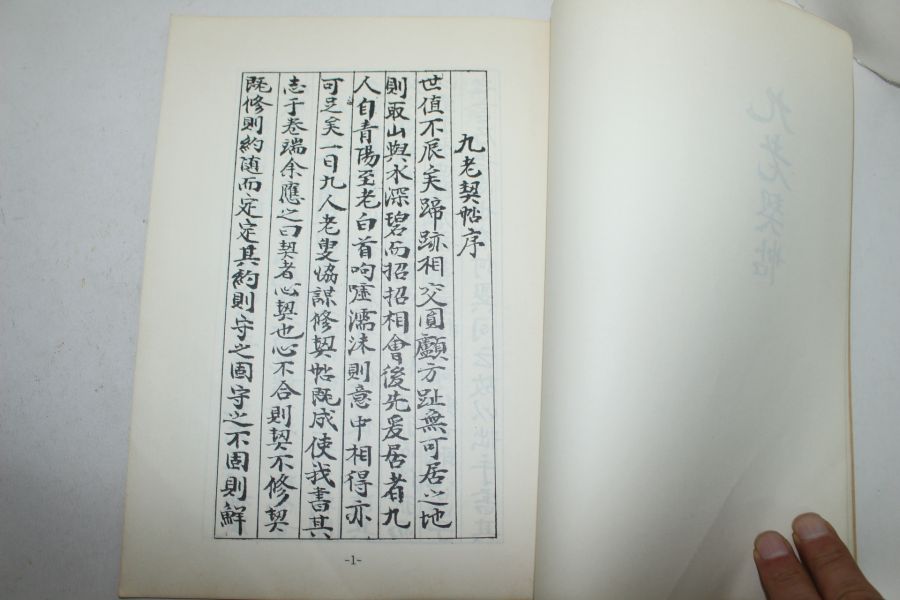 九老契帖序
世值不辰矣蹄跡相交圓顱方趾無可居之地
則取山與水深碧而招招相會後先爰居者九
人自青陽至老白首呴噓濡沫則意中相得亦
可足矣一日九人老叟恊謀修契帖既成使我書其
志于卷端余應之曰契者心契也心不合則契不修契
既修則約随而定定其約則守之固守之不固則鮮
-1-
九老契帖